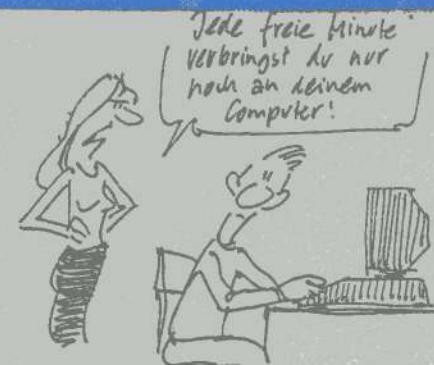 Jede freie Minute
verbringst du nur
noch an deinem
Computer!